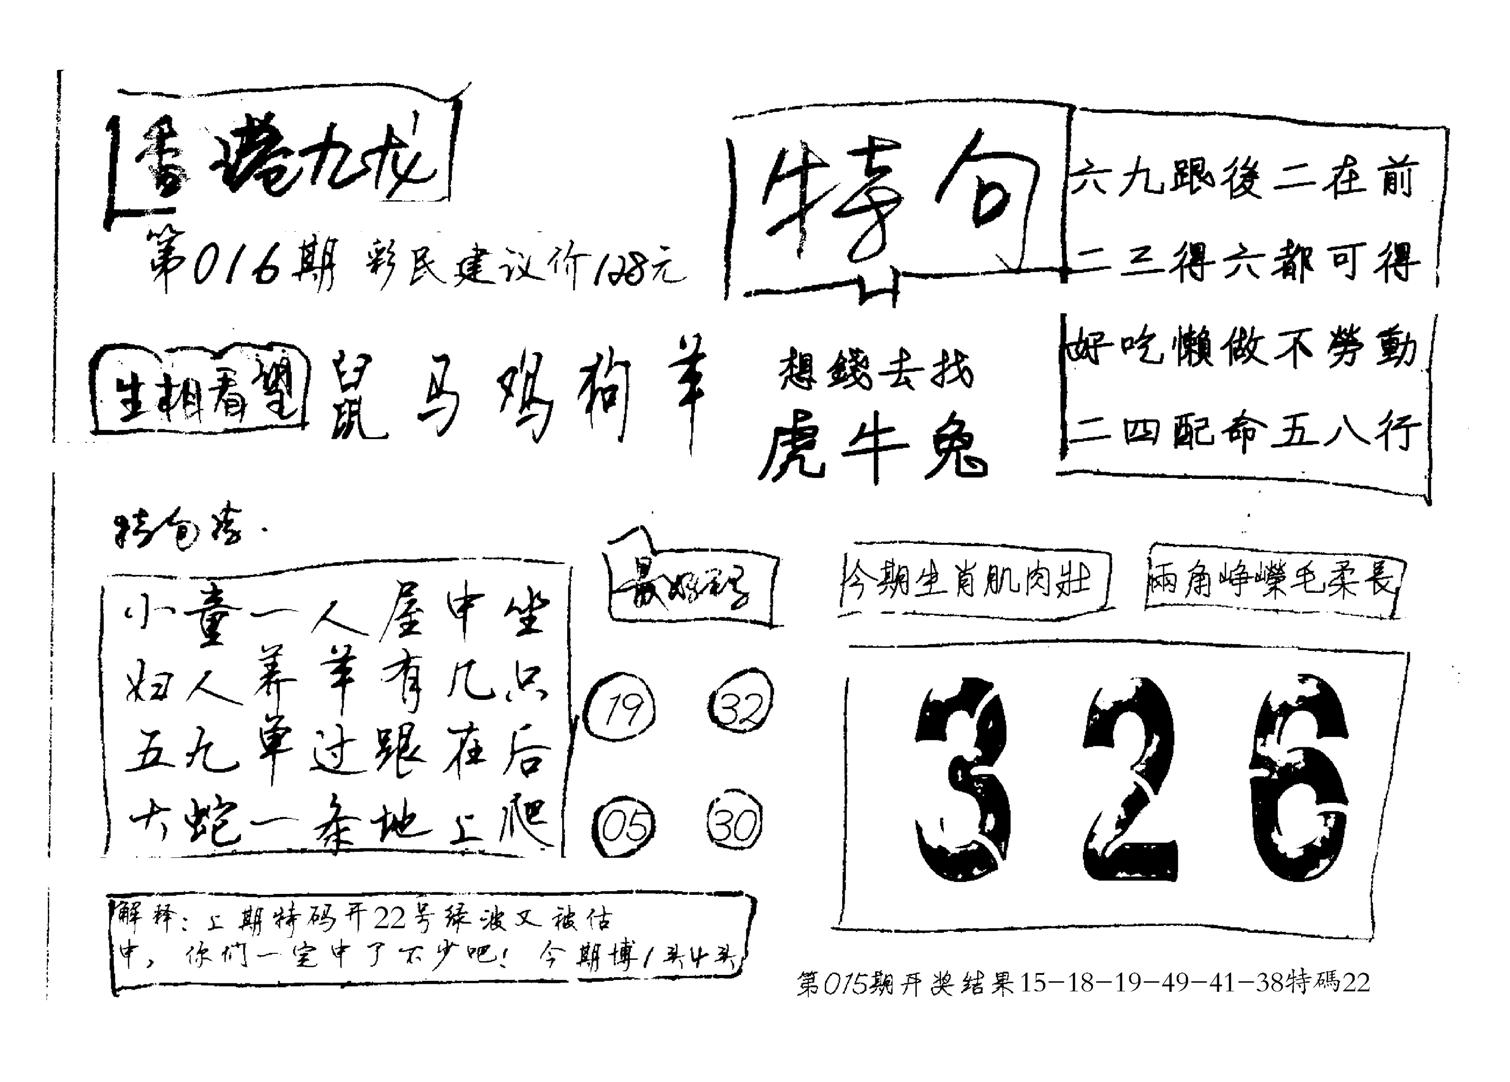 香港九龙
第016期 彩民建议价128元
特句
六九跟後二在前
二三得六都可得
好吃懶做不勞動
二四配命五八行
生相看望
鼠马鸡狗羊
想錢去找
虎牛兔
小童一人屋中坐
妇人养羊有几只
五九单过跟在后
大蛇一条地上爬
最好码
19 32
05 30
今期生肖肌肉壯
兩角崢嶸毛柔長
326
解释:上期特码开22号绿波又被估
中,你们一定中了不少吧!今期博1头4头
第015期开奖结果15-18-19-49-41-38特碼22